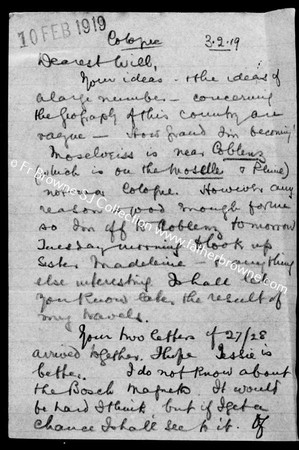 10 FEB 1919
Cologne 3.2.19
Dearest Will,
Your ideas - & the ideas of
a large number - concerning
the geography of this country are
vague - How grand I'm becoming!
Moselweiss is near Coblenz
(which is on the Moselle & Rhine)
not near Cologne. However any
reason good enough for me
so I'm off to Coblenz tomorrow
Tuesday morning to look up
Sister Madeleine & anything
else interesting I shall let
you know later the result of
my travels.
Your two letters of 27/28
arrived together. I hope Leslie is
better. I do not know about
the Bosch Magneto. It would
be hard I think, but if I get a
chance I shall see to it. Of
© Fr Browne SJ Collection